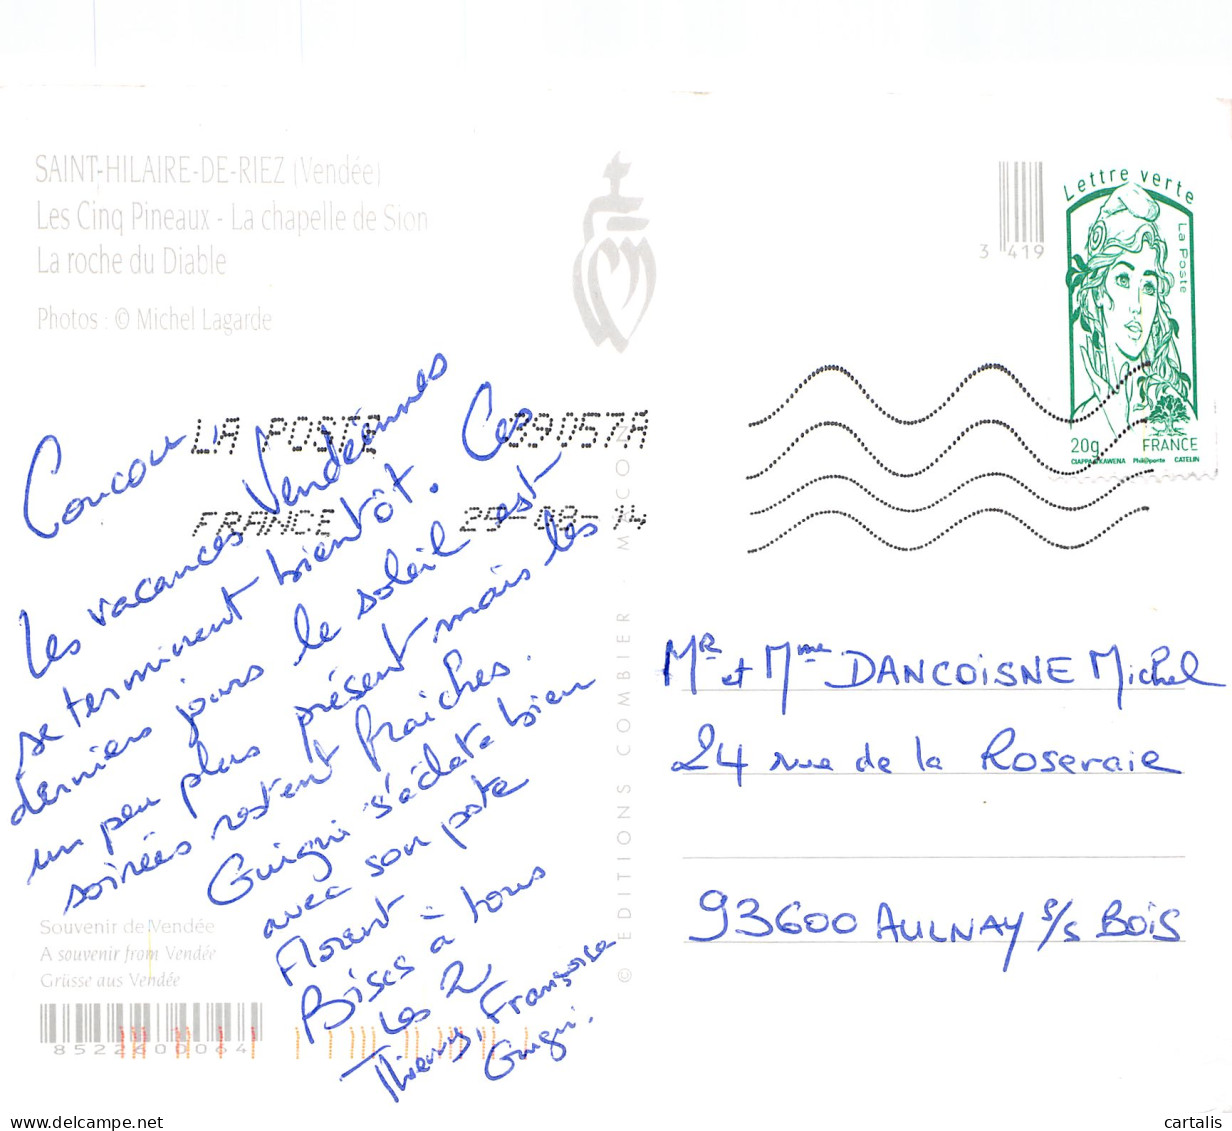 SAINT-HILAIRE-DE-RIEZ (Vendée)
Les Cinq Pineaux - La chapelle de Sion
La roche du Diable
Photos : © Michel Lagarde
3 419
Lettre verte
La Poste
20g FRANCE
CIAPPA KAWENA Phil@poste CATELIN
LA POSTE 39057A
FRANCE 29-08-14
Coucou,
Les vacances Vendéennes
se terminent bientôt. Ces
derniers jours le soleil est
un peu plus présent mais les
soirées restent fraiches.
Guigui s'éclate bien
avec son pote
Florent -
Bises à tous
Les 2
Thierry, Françoise
Guigui.
© EDITIONS COMBIER MACON
Mr et Mme DANCOISNE Michel
24 rue de la Roseraie
93600 AULNAY s/s BOIS
Souvenir de Vendée
A souvenir from Vendée
Grüsse aus Vendée
8522600064
cartalis